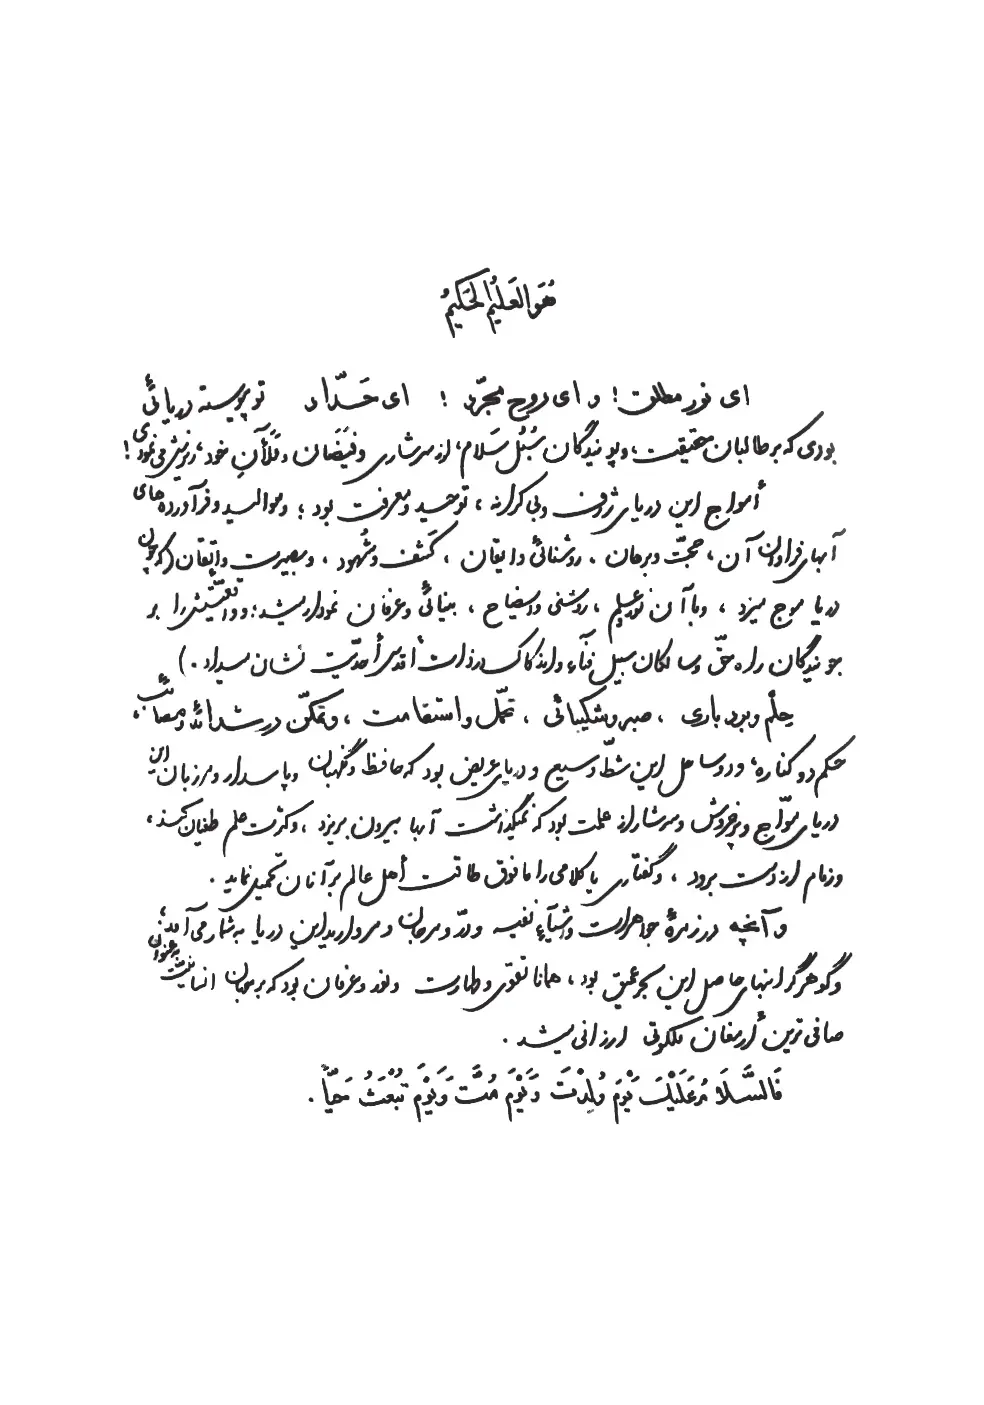 هُوَ العَلیُم الحَکیمُ
ای نور مطلق! و ای روح مجرّد! ای حَدّاد تو پیوسته دریائی
بودی که بر طالبان حقیقت، و پویندگان سُبُل سَلام، از سرشاری و فَیَضان و مَلَأن خود، ریزش می‌نمودی!
أمواج این دریای ژرف و بی کرانه، توحید و معرفت بود؛ و موالید و فرآورده‌های
آبهای فراوان آن، حجّت و برهان. روشنائی و ایقان، کَشف و شُهود، و بصیرت و اتقان (که چون
دریا موج میزد، و با آن نور علم، روشنی و ایضاح، بینائی و عرفان نمودار میشد؛ و واقعیّتش را بر
جویندگان راه حقّ و سالکان سبیل فنآء و اندکاک در ذات أقدس أحدیّت نشان میداد.)
حِلْم و بردباری، صبر و شکیبائی، تحمّل و استقامت، و تمکّن در شدائد و مصائب،
حکم دو کناره، و دو ساحل این شطّ وسیع و دریای عریض بود که حافظ و نگهبان و پاسدار و مرزبان این
دریای موّاج و پرخروش و سرشار از علمت بود که نمیگذاشت آبها بیرون بریزد، و کثرت علم طغیان کند،
و زمام از دست برود، و گفتاری یا کلامی را ما فوق طاقت أهل عالم بر آنان تحمیل نماید.
و آنچه در زمرهٔ جواهرات و أشیآء نفیسه و درّ و مرجان و مروارید این دریا به شمار می‌آمد،
و گوهر گرانبهای حاصل این بحر عمیق بود، همانا تقوی و طهارت و نور و عرفان بود که بر جهان انسانیّت به عنوان
صافی ترین أرمغان ملکوتی ارزانی میشد.
فَالسَّلَامُ عَلَیْکَ یَوْمَ وُلِدْتَ وَ یَوْمَ مُتَّ وَ یَوْمَ تُبْعَثُ حَیًّا.